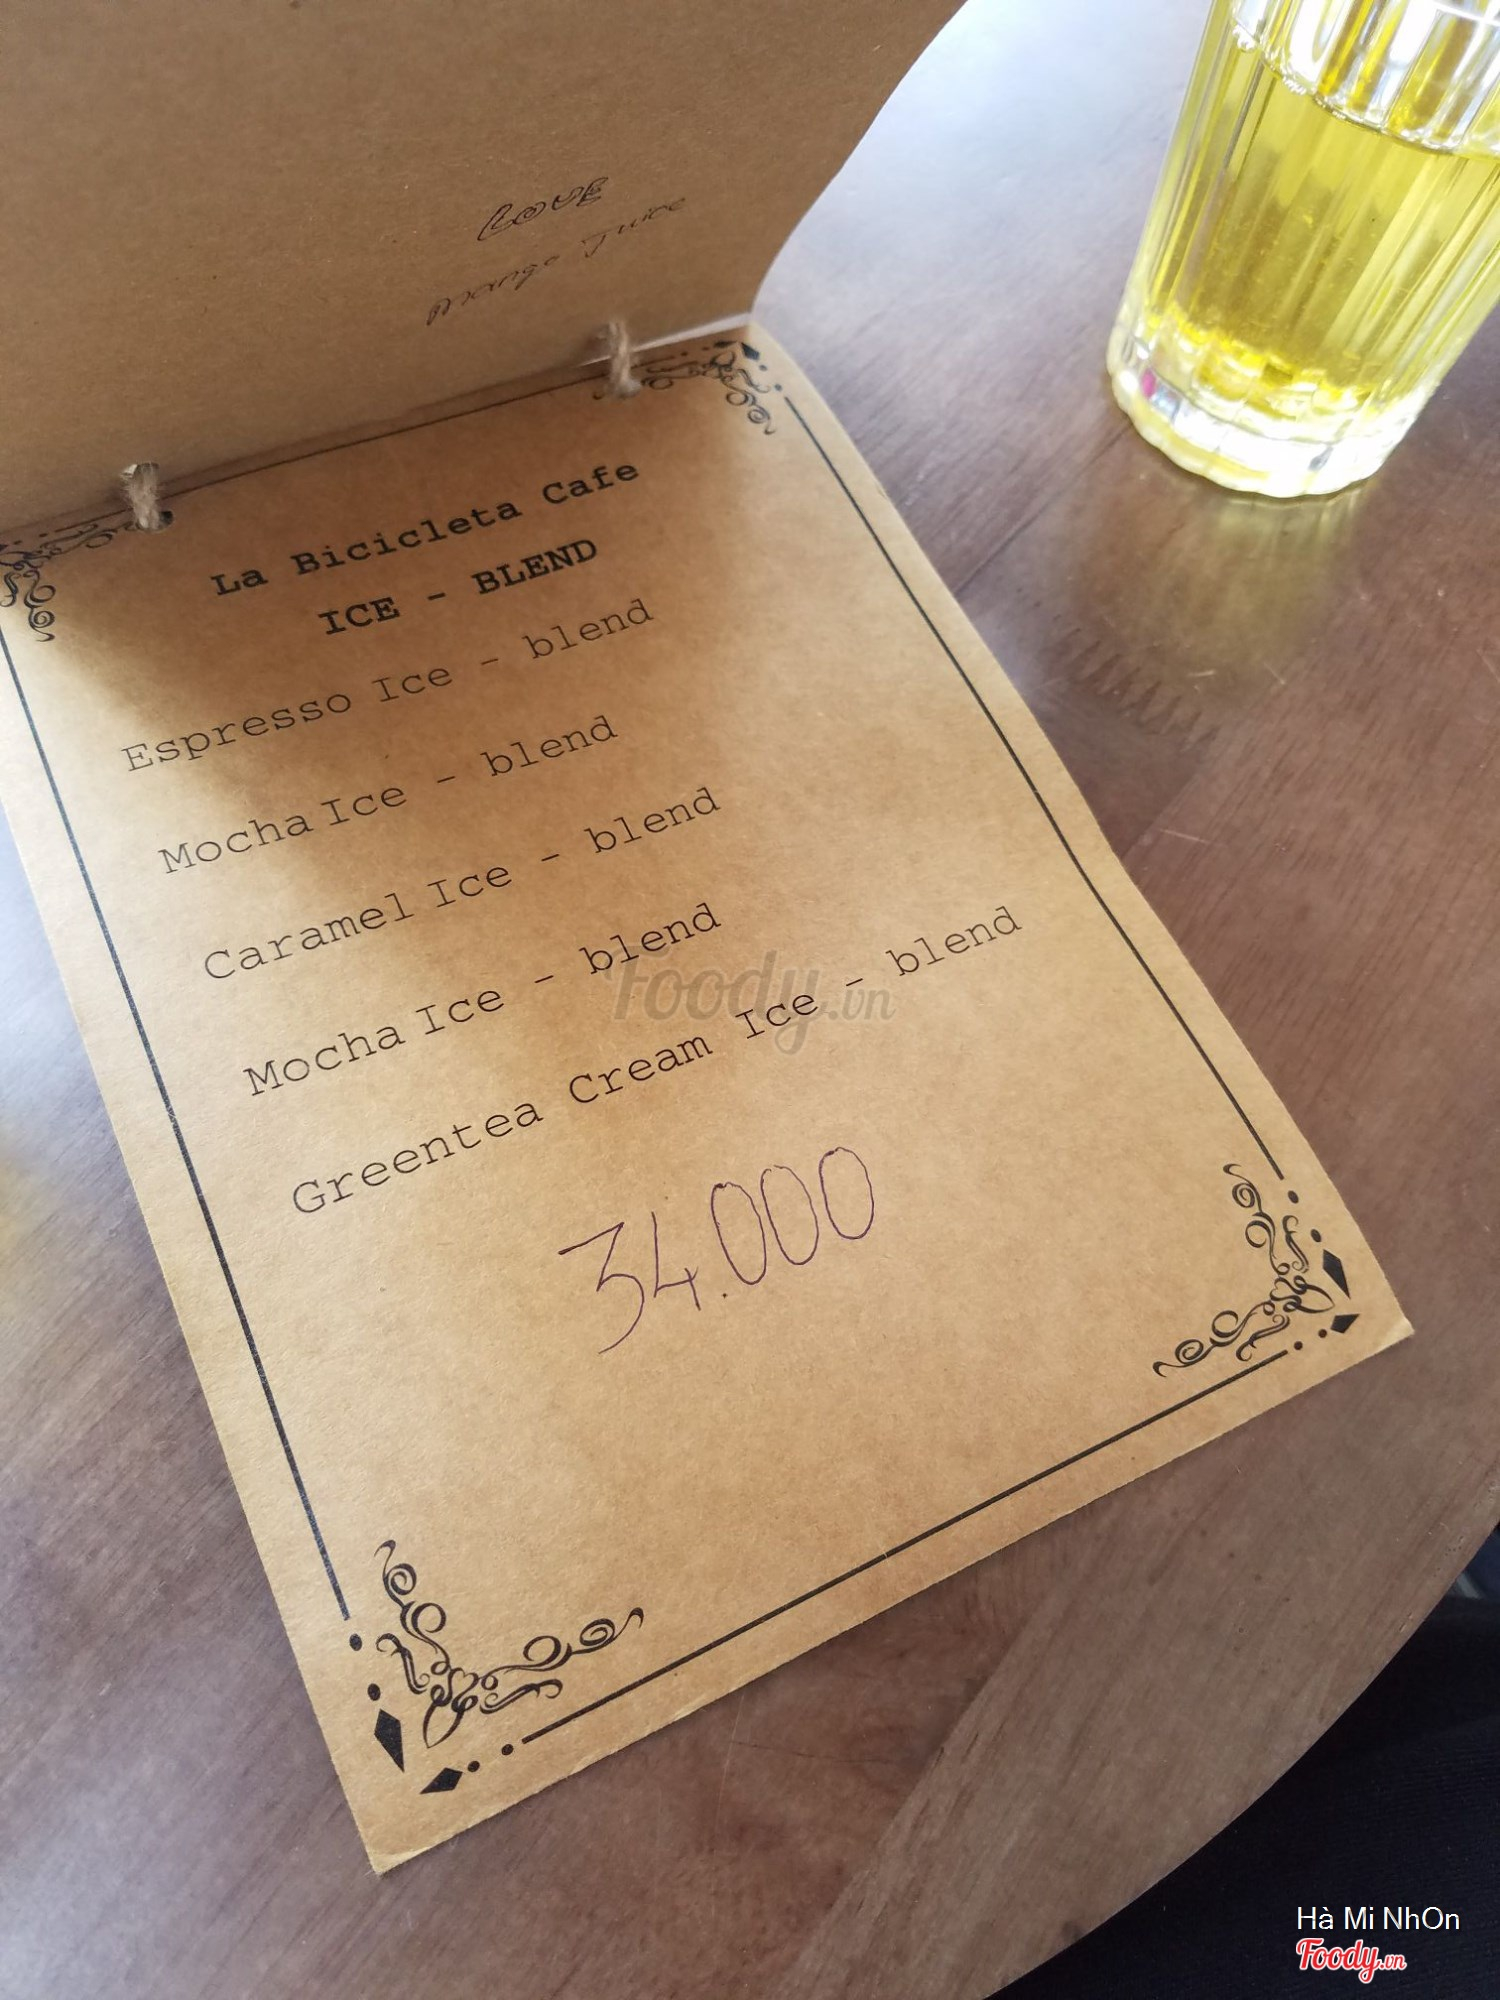 LOVE
Mango Juice
La Bicicleta Cafe
ICE - BLEND
Espresso Ice - blend
Mocha Ice - blend
Caramel Ice - blend
Mocha Ice - blend
Greentea Cream Ice - blend
34.000
Foody.vn
Hà Mi NhOn
Foody.vn